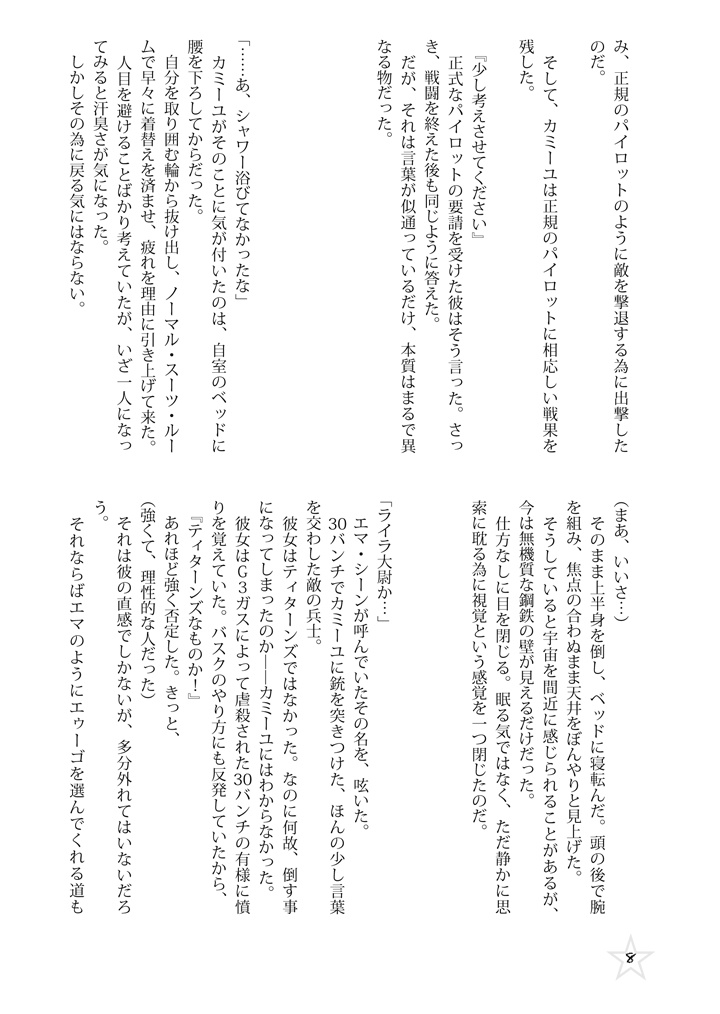 み、正規のパイロットのように敵を撃退する為に出撃した
のだ。
そして、カミーユは正規のパイロットに相応しい戦果を
残した。
『少し考えさせてください』
正式なパイロットの要請を受けた彼はそう言った。さっ
き、戦闘を終えた後も同じように答えた。
だが、それは言葉が似通っているだけ、本質はまるで異
なる物だった。
「……あ、シャワー浴びてなかったな」
カミーユがそのことに気が付いたのは、自室のベッドに
腰を下ろしてからだった。
自分を取り囲む輪から抜け出し、ノーマル・スーツ・ルー
ムで早々に着替えを済ませ、疲れを理由に引き上げて来た。
人目を避けることばかり考えていたが、いざ一人になっ
てみると汗臭さが気になった。
しかしその為に戻る気にはならない。
(まあ、いいさ…)
そのまま上半身を倒し、ベッドに寝転んだ。頭の後で腕
を組み、焦点の合わぬまま天井をぼんやりと見上げた。
そうしていると宇宙を間近に感じられることがあるが、
今は無機質な鋼鉄の壁が見えるだけだった。
仕方なしに目を閉じる。眠る気ではなく、ただ静かに思
索に耽る為に視覚という感覚を一つ閉じたのだ。
「ライラ大尉か…」
エマ・シーンが呼んでいたその名を、呟いた。
30バンチでカミーユに銃を突きつけた、ほんの少し言葉
を交わした敵の兵士。
彼女はティターンズではなかった。なのに何故、倒す事
になってしまったのか――カミーユにはわからなかった。
彼女はG3ガスによって虐殺された30バンチの有様に憤
りを覚えていた。バスクのやり方にも反発していたから、
『ティターンズなものか！』
あれほど強く否定した。きっと、
(強くて、理性的な人だった)
それは彼の直感でしかないが、多分外れてはいないだろ
う。
それならばエマのようにエゥーゴを選んでくれる道も
8